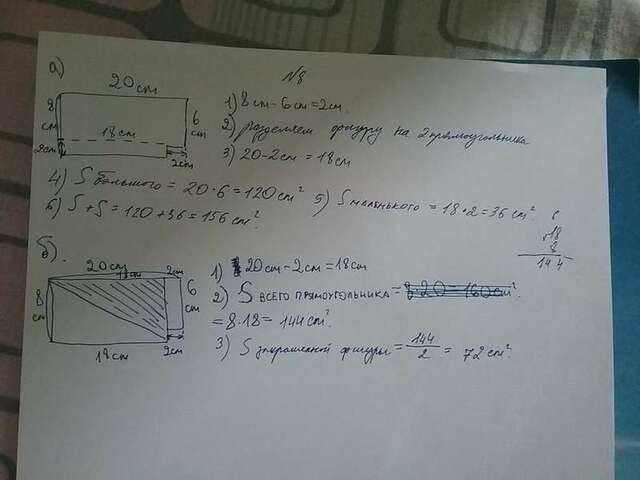 N8
а)
20 см
8 см
2см
18см
2см
6 см
1) 8 см - 6 см = 2 см.
2) разделим фигуру на 2 прямоугольника
3) 20 - 2 см = 18 см
4) S большого = 20 · 6 = 120 см²
5) S маленького = 18 · 2 = 36 см².
6) S + S = 120 + 36 = 156 см².
б).
8 см
20 см
18см
18см
2см
2см
6 см
1) 20 см - 2 см = 18 см
2) S всего прямоугольника = 8·20 = 160 см².
= 8·18 = 144 см².
3) S закрашенной фигуры = 144/2 = 72 см².
18
8
144